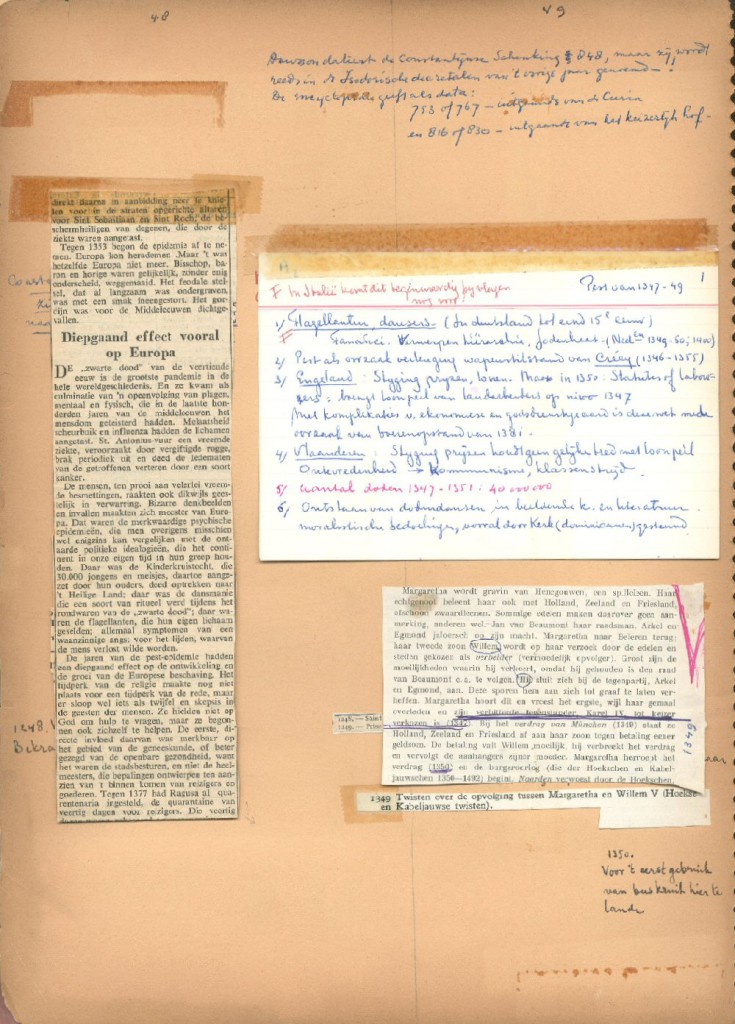 48
49
Dawson dateert de Constantijnse Schenking ± 848, maar zij wordt
reeds in de Isidorische decretalen van 't vorige jaar genoemd.
De encyclopedie geeft als data:
753 of 767 – uitgaande van de Curia
en 816 of 830 – uitgaande van het keizerlijk hof.
direkt daarna in aanbidding neer te knie-
len voor in de straten opgerichte altaren
voor Sint Sebastiaan en Sint Roch, de be-
schermheiligen van degenen, die door de
ziekte waren aangetast.
Tegen 1353 begon de epidemie af te ne-
men. Europa kon herademen. Maar 't was
hetzelfde Europa niet meer. Bisschop, ba-
ron en horige waren gelijkelijk, zonder enig
onderscheid, weggemaaid. Het feodale stel-
sel, dat al langzaam was ondergraven,
was met een smak ineengestort. Het gor-
dijn was voor de Middeleeuwen dichtge-
vallen.
Diepgaand effect vooral
op Europa
DE „zwarte dood” van de veertiende
eeuw is de grootste pandemie in de
hele wereldgeschiedenis. En ze kwam als
culminatie van 'n opeenvolging van plagen,
mentaal en fysisch, die in de laatste hon-
derden jaren van de middeleeuwen het
mensdom geteisterd hadden. Melaatsheid
scheurbuik en influenza hadden de lichamen
aangetast. St. Antonius-vuur een vreemde
ziekte, veroorzaakt door vergiftigde rogge,
brak periodiek uit en deed de ledematen
van de getroffenen verteren door een soort
kanker.
De mensen, ten prooi aan velerlei vreem-
de besmettingen, raakten ook dikwijls gees-
telijk in verwarring. Bizarre denkbeelden
en invallen maakten zich meester van Euro-
pa. Dat waren de merkwaardige psychische
epidemieën, die men overigens misschien
wel enigzins kan vergelijken met de ont-
aarde politieke idealogieën, die het conti-
nent in onze eigen tijd in hun greep hou-
den. Daar was de Kinderkruistocht, die
30.000 jongens en meisjes, daartoe aange-
zet door hun ouders, deed optrekken naar
't Heilige Land; daar was de dansmanie
die een soort van ritueel werd tijdens het
rondwaren van de „zwarte dood”; daar wa-
ren de flagellanten, die hun eigen lichaam
geselden; allemaal symptomen van een
waanzinnige angst voor het lijden, waarvan
de mens verlost wilde worden.
De jaren van de pest-epidemie hadden
een diepgaand effect op de ontwikkeling en
de groei van de Europese beschaving. Het
tijdperk van de religie maakte nog niet
plaats voor een tijdperk van de rede, maar
er sloop wel iets als twijfel en skepsis in
de geesten der mensen. Ze hielden niet op
God om hulp te vragen, maar ze begon-
nen ook zichzelf te helpen. De eerste, di-
recte invloed daarvan was merkbaar op
het gebied van de geneeskunde, of beter
gezegd van de openbare gezondheid, want
het waren de stadsbesturen, en niet de heel-
meesters, die bepalingen ontwierpen ten aan-
zien van 't binnen komen van reizigers en
goederen. Tegen 1377 had Ragusa al qua-
rentenaria ingesteld, de quarantaine van
veertig dagen voor reizigers. Die veertig
F In Italië komt dit tegenwoordig bij vlagen
nog voor!
Pest van 1347-49
1
1) Flagellanten, dansers. (In duitsland tot eind 15e eeuw)
F Fanatici. Verwerpen hierarchie, Jodenhaat. (Nedln 1349-50; 1400)
2) Pest als oorzaak verlenging wapenstilstand van Crécy (1346-1355)
3) Engeland: Stijging prijzen, lonen. Maar in 1350: Statutes of Labour-
ers: brengt loonpeil van landarbeiders op nivo 1347
Met komplikaties v. ekonomiese en godsdienstige aard is deze wet mede
oorzaak van boerenopstand van 1381.
4) Vlaanderen: Stijging prijzen houdt geen gelijke tred met loonpeil
Ontevredenheid → Kommunisme, klassenstrijd.
5) Aantal doden 1347-1351: 40 000 000
6) Ontstaan van dodendansen, in beeldende k. en literatuur.
moralistische bedoelingen, vooral door kerk (dominicanen) gesteund
Margaretha wordt gravin van Henegouwen, een spilleleen. Haar
echtgenoot beleent haar ook met Holland, Zeeland en Friesland,
ofschoon zwaardleenen. Sommige edelen maken daarover geen aan-
merking, anderen wel. Jan van Beaumont haar raadsman. Arkel en
Egmond jaloersch op zijn macht. Margaretha naar Beieren terug;
haar tweede zoon Willem wordt op haar verzoek door de edelen en
steden gekozen als verbeider (vermoedelijk opvolger). Groot zijn de
moeilijkheden waarin hij verkeert, omdat hij gehouden is den raad
van Beaumont e.a. te volgen. Hij sluit zich bij de tegenpartij, Arkel
en Egmond, aan. Deze sporen hem aan zich tot graaf te laten ver-
heffen. Margaretha hoort dit en vreest het ergste, wijl haar gemaal
overleden en zijn verbitterde tegenstander, Karel IV, tot keizer
verkozen is (1347). Bij het verdrag van München (1349) staat ze
Holland, Zeeland en Friesland af aan haar zoon tegen betaling eener
geldsom. De betaling valt Willem moeilijk, hij verbreekt het verdrag
en vervolgt de aanhangers zijner moeder. Margaretha herroept het
verdrag (1350) en de burgeroorlog (die der Hoekschen en Kabel-
jauwschen 1350—1492) begint. Naarden verwoest door de Hoekschen.
1248. — Saint
1249. — Prise
1349 Twisten over de opvolging tussen Margaretha en Willem V (Hoekse
en Kabeljauwse twisten).
1248.
Bekra
aar
1350.
Voor 't eerst gebruik
van buskruit hier te
lande